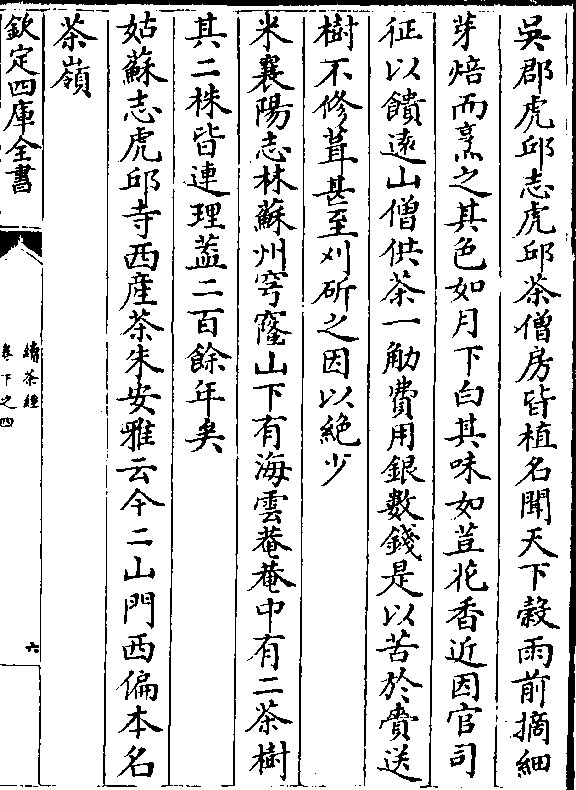 吳郡虎邱志虎邱茶僧房皆植名聞天下榖雨前摘細
芽焙而烹之其色如月下白其味如荳花香近因官司
征以饋逺山僧供茶一觔費用銀數錢是以苦於賫送
樹不修葺甚至刈斫之因以絶少
米襄陽志林蘇州穹窿山下有海雲菴菴中有二茶樹
其二株皆連理葢二百餘年矣
姑蘇志虎邱寺西産茶朱安雅云今二山門西偏本名
茶嶺
欽定四庫全書
續茶經
卷下之四
六